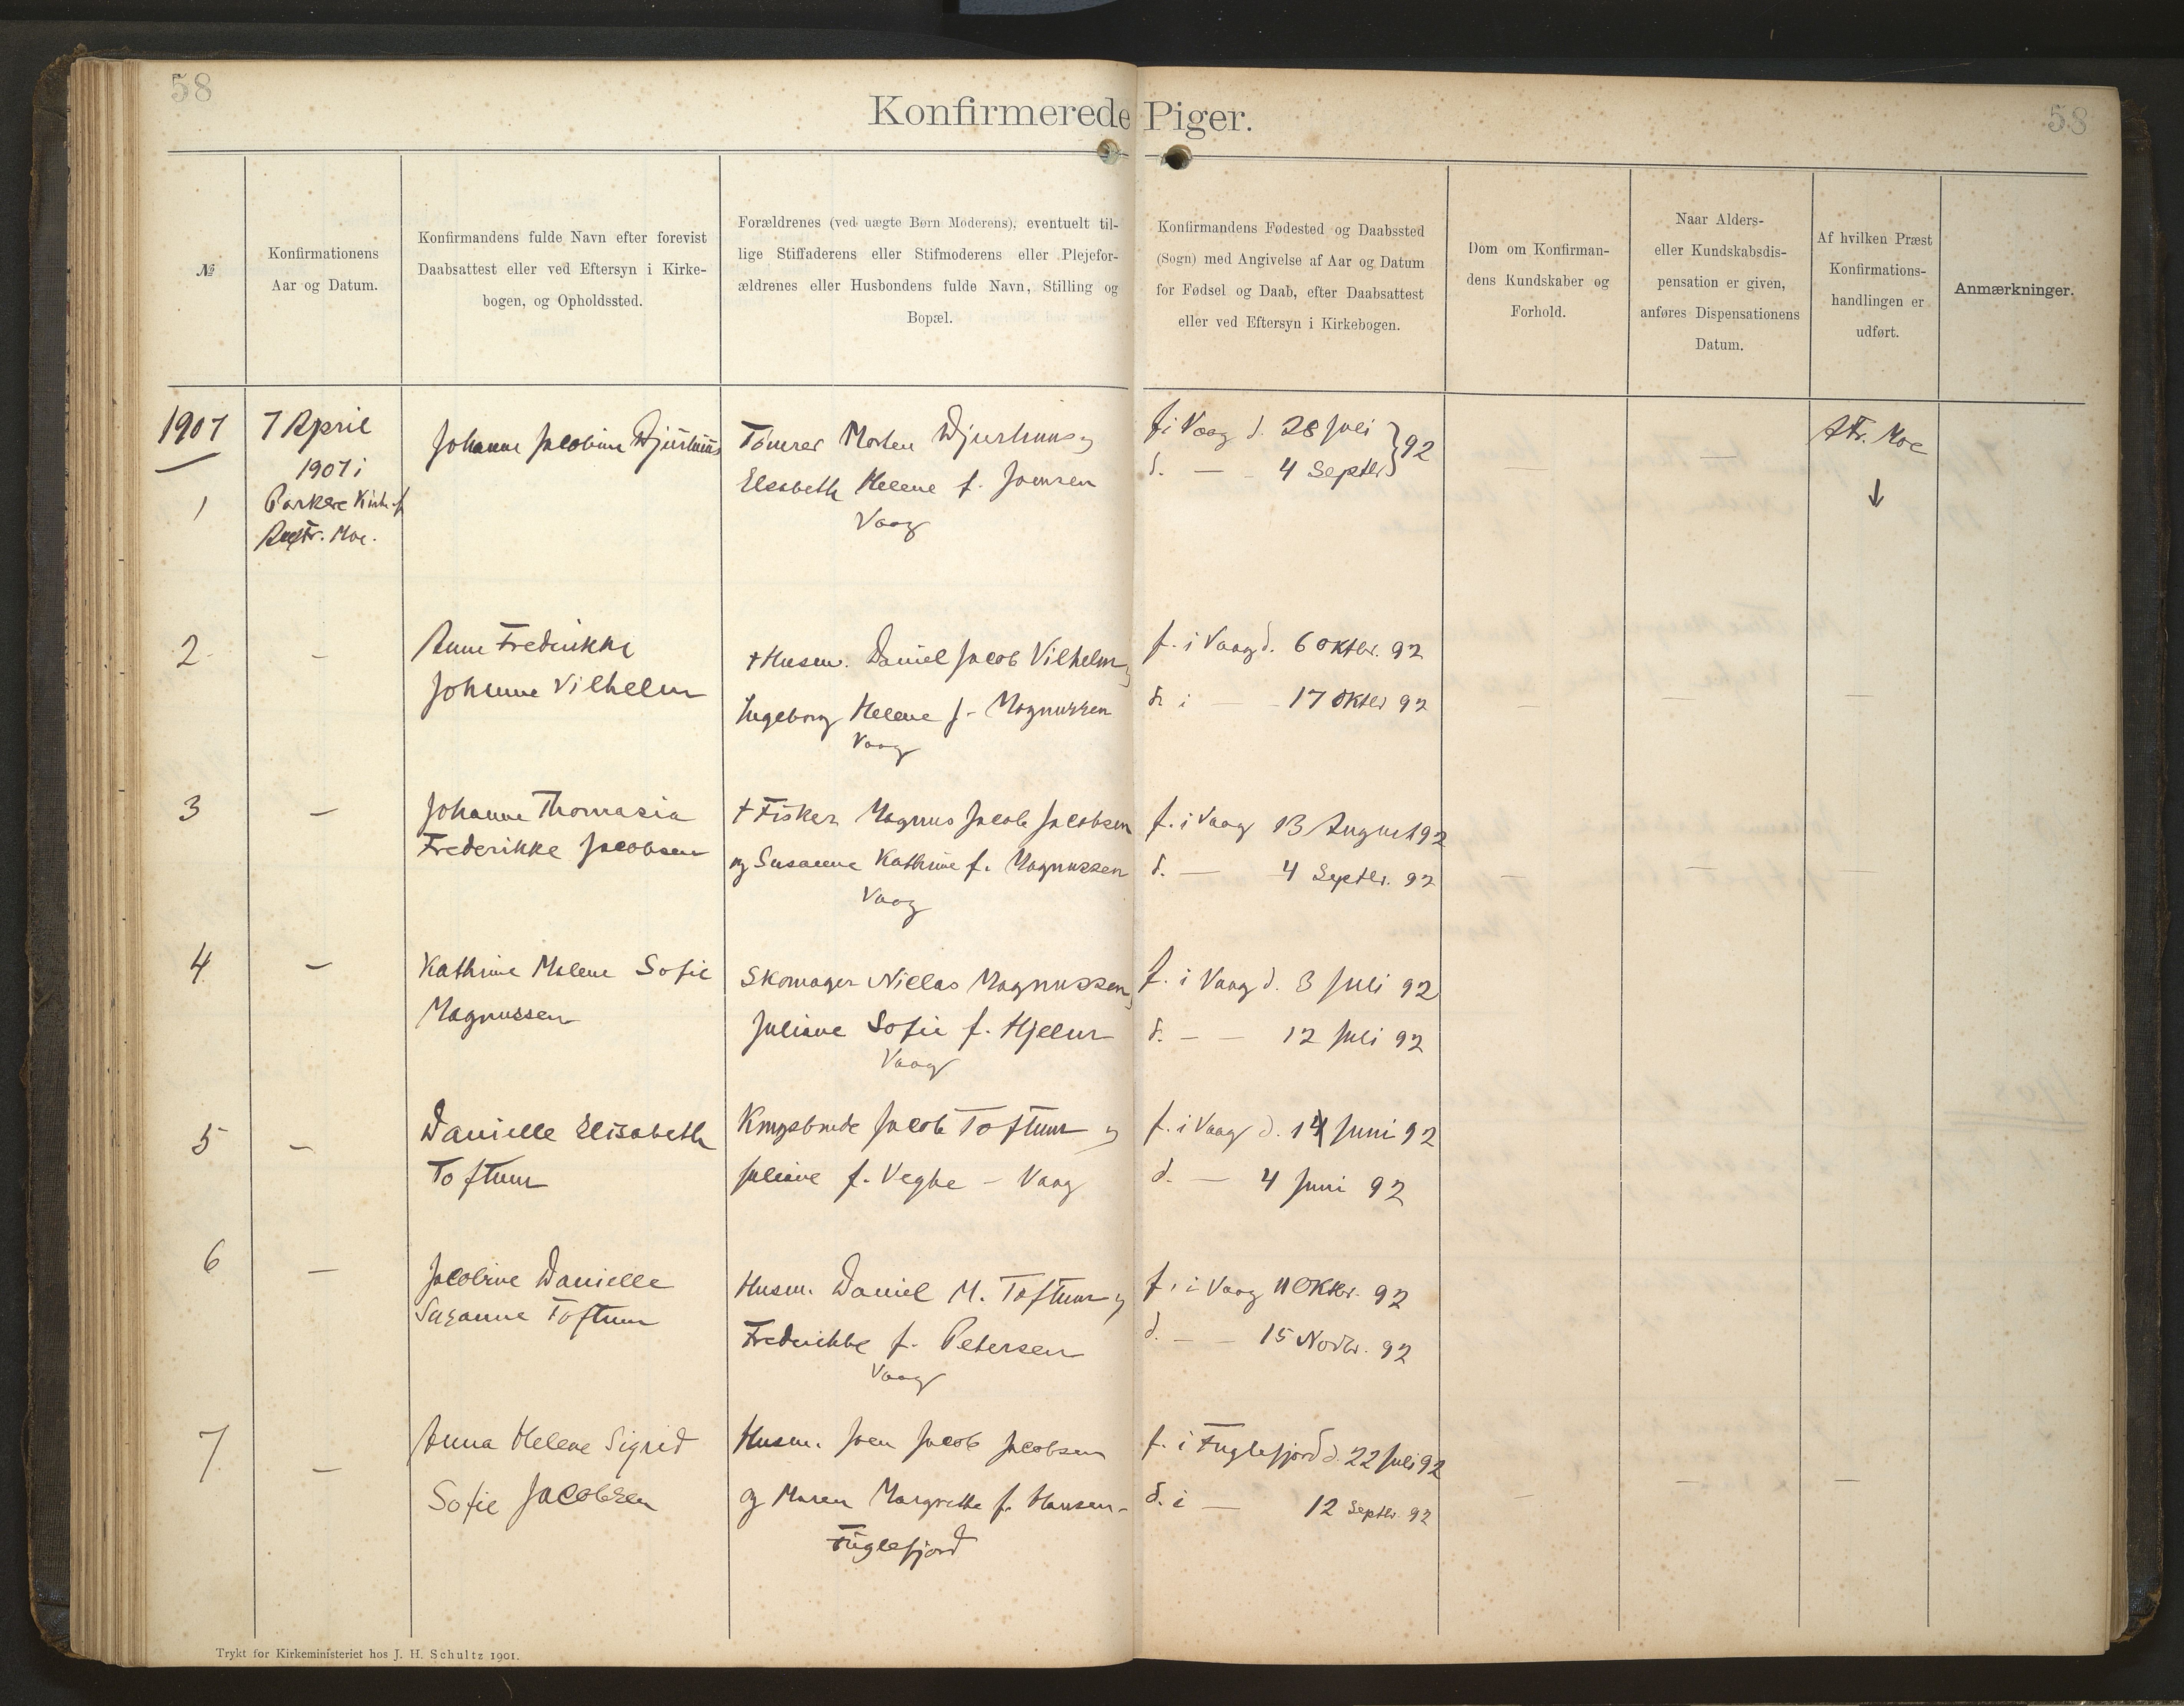 58
58
Konfirmerede Piger.
№
Konfirmationens
Aar og Datum.
Konfirmandens fulde Navn efter forevist
Daabsattest eller ved Eftersyn i Kirke-
bogen, og Opholdssted.
Forældrenes (ved uægte Børn Moderens), eventuelt til-
lige Stiffaderens eller Stifmoderens eller Plejefor-
ældrenes eller Husbondens fulde Navn, Stilling og
Bopæl.
Konfirmandens Fødested og Daabssted
(Sogn) med Angivelse af Aar og Datum
for Fødsel og Daab, efter Daabsattest
eller ved Eftersyn i Kirkebogen.
Dom om Konfirman-
dens Kundskaber og
Forhold.
Naar Alders-
eller Kundskabsdis-
pensation er given,
anføres Dispensationens
Datum.
Af hvilken Præst
Konfirmations-
handlingen er
udført.
Anmærkninger.
1907
1
7 April
1907 i
Moe.
Johanne Jacobine Djurhuus
Tömrer Morten Djurhuus og
Elsebeth Helene f. Joensen
Vaag
f. i Vaag d. 28 Juli
d. — - 4 Septbr } 92
Moe
↓
2
—
Anne Frederikke
Johanne Vilhelm
† Husm. Daniel Jacob Vilhelm og
Ingeborg Helene f. Magnussen
Vaag
f. i Vaag d. 6 Oktbr. 92
d. i — - 17 Oktbr 92
3
—
Johanne Thomasia
Frederikke Jacobsen
† Fisker Magnus Jacob Jacobsen
og Susanne Kathrine f. Magnussen
Vaag
f. i Vaag 13 August 92
d. — 4 Septbr. 92
4
—
Kathrine Malene Sofie
Magnussen
Skomager Niclas Magnussen og
Juliane Sofie f. Hjelm
Vaag
f. i Vaag d. 3 Juli 92
d. — — 12 Juli 92
5
—
Danielle Elisabeth
Toftum
Kongsbonde Jacob Toftum og
Juliane f. Vegbe - Vaag
f. i Vaag d. 1 Juni 92
d. — 4 Juni 92
6
—
Jacobine Danielle
Susanne Toftum
Husm. Daniel M. Toftum og
Frederikke f. Petersen
Vaag
f. i Vaag 11 Oktbr. 92
d. — — 15 Novbr. 92
7
—
Anna Helene Sigrid
Sofie Jacobsen
Husm. Joen Jacob Jacobsen
og Maren Margrethe f. Hansen -
Fuglefjord
f. i Fuglefjord d. 22 Juli 92
d. i — 12 Septbr. 92
Trykt for Kirkeministeriet hos J. H. Schultz 1901.